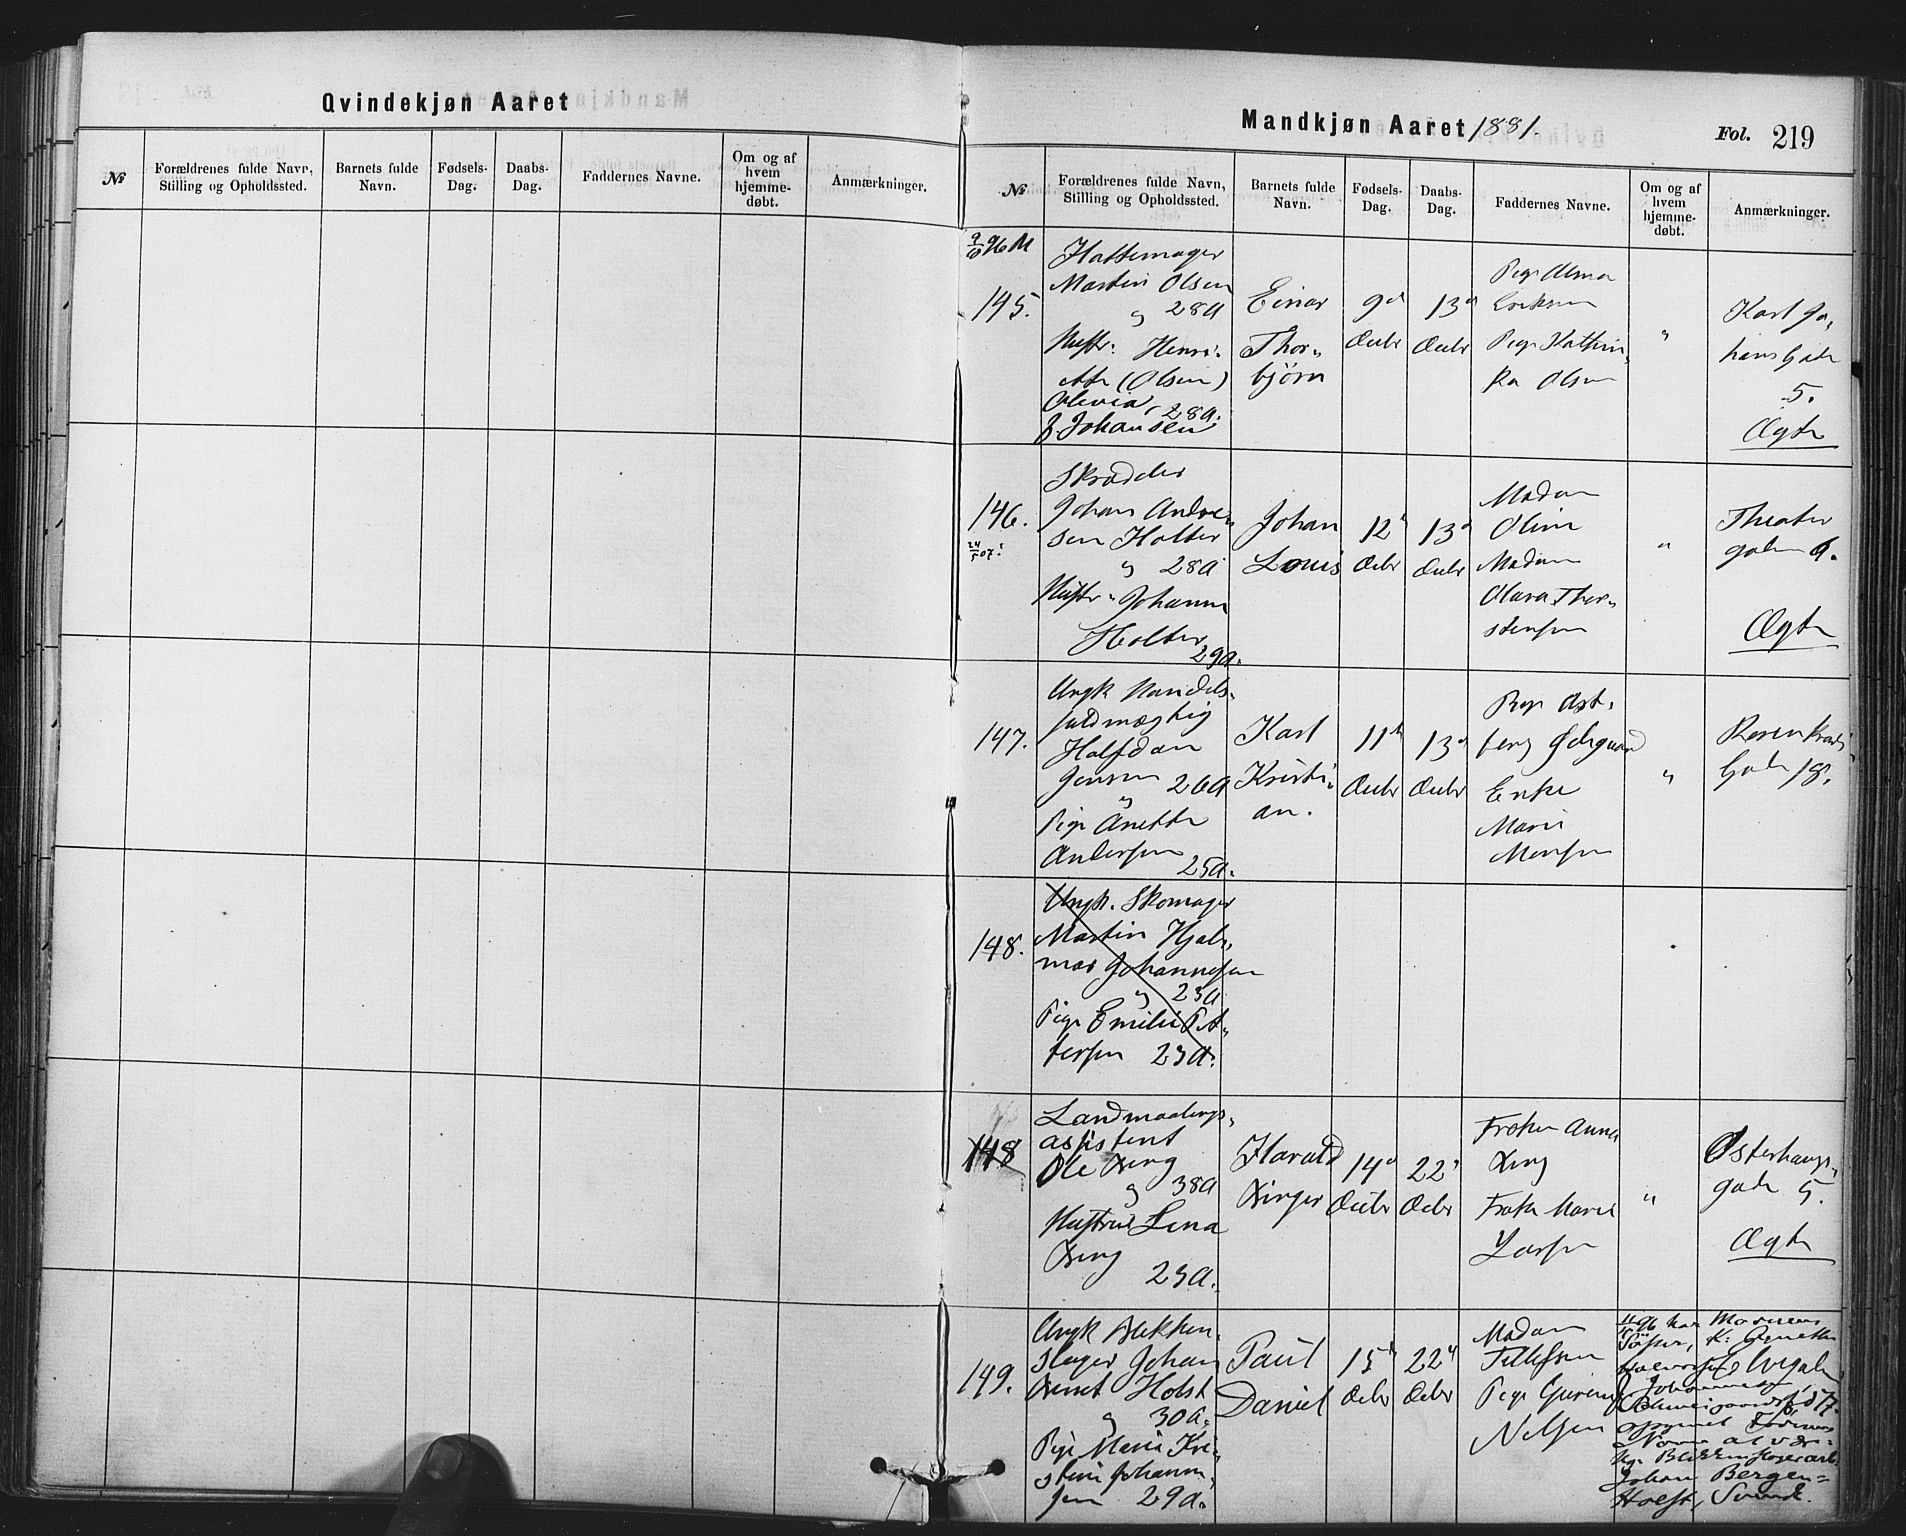 Qvindekjøn Aaret
№
Forældrenes fulde Navn,
Stilling og Opholdssted.
Barnets fulde
Navn.
Fødsels-
Dag.
Daabs-
Dag.
Faddernes Navne.
Om og af
hvem
hjemme-
døbt.
Anmærkninger.
Mandkjøn Aaret 1881.
Fol. 219
№
Forældrenes fulde Navn,
Stilling og Opholdssted.
Barnets fulde
Navn.
Fødsels-
Dag.
Daabs-
Dag.
Faddernes Navne.
Om og af
hvem
hjemme-
døbt.
Anmærkninger.
145.
Hattemager
Martin Olsen
28a
Hustr. Henri-
ette (Olsen)
Olevia 28a.
f. Johansen
Einar
Thor-
bjørn
9d
Decbr
13d
Decbr
Pige Alma
Eriksen
Pige Kathin-
ka Olsen
"
Karl Jo-
hans Gade
5.
Ægte
146.
Skrædder
Johan Andre-
sen Holter
28a
Hustr. Johanne
Holter
29a.
Johan
Louis
12
Decbr
13d
Decbr
Madam
Oline
Madam
Olava Thor-
stensen
"
Theater
gaden 9.
Ægte
147.
Ungk Handels-
fuldmægtig
Halfdan
Jensen 26a
Pige Anette
Andersen
25a.
Karl
Kristi-
an.
11te
Decbr
13d
Decbr
Enke
Marie
Monsen
"
Rosenkrantz
Gade 18.
148.
Ungk. Skomager
Martin Hjal-
mar Johannesen
23a
Pige Emilie Pet-
tersen 23a.
148
Landmaalings-
assistent
Ole
38a
Hustrue Lena
23a.
Harald
14d
Decbr
22d
Decbr
Frøken Anna
Frøken Marie
Larsen
"
Østerhaugs-
gade 5.
Ægte
149.
Ungk Blikken-
slager Johan
Bernt Holst
30a.
Pige Maria Kri-
stine Johanne-
sen 29a.
Paul
Daniel
15d
Decbr
22d
Decbr
Madam
Tellefsen
Pige
Nelsen
96 har Moderens
Søster,
Johannesen
opgivet Faderens
Navn at være
Blikkenslagerarb.
Johan Bergen-
Holst, Svensk.